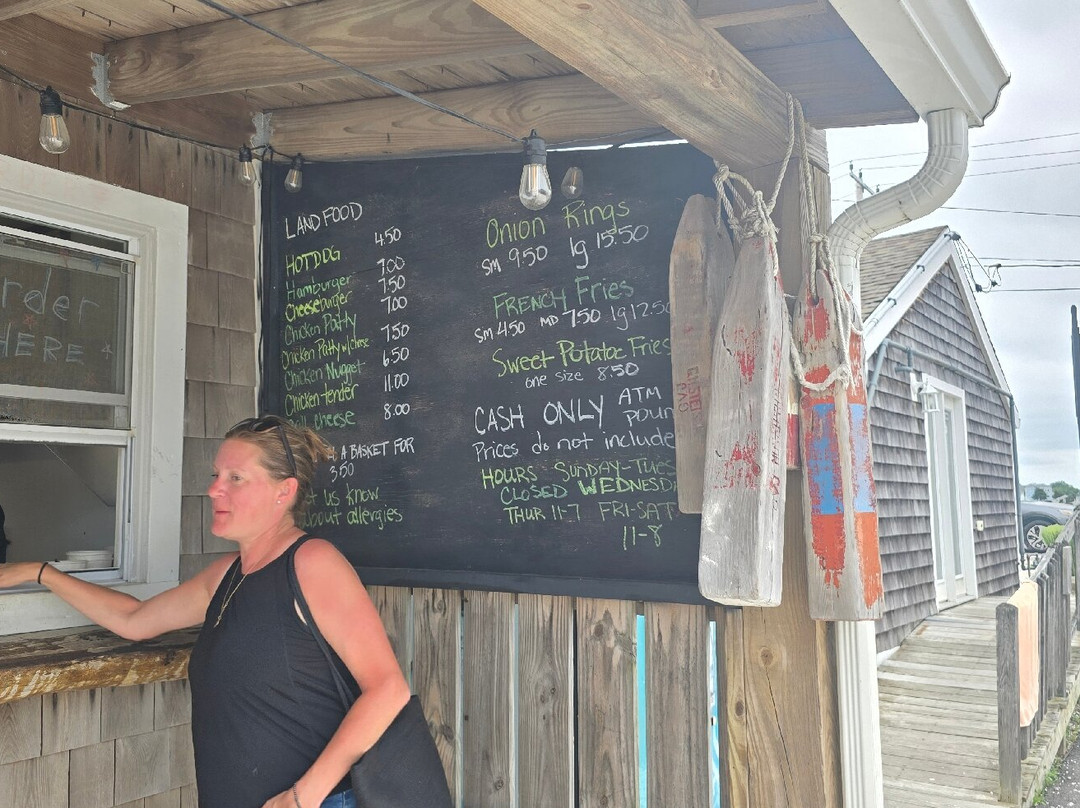 rder
HERE
LAND FOOD
HOTDOG 4.50
Hamburger 7.00
Cheeseburger 7.50
Chicken Patty 7.00
Chicken Patty w/cheese 7.50
Chicken Nugget 6.50
Chicken-tender 11.00
cheese 8.00
A BASKET FOR
3.50
us know
about allergies
Onion Rings
sm 9.50 lg 15.50
FRENCH Fries
sm 4.50 MD 7.50 lg 12.50
Sweet Potatoe Fries
one size 8.50
CASH ONLY ATM
Prices do not include
HOURS SUNDAY-TUES
CLOSED WEDNESD
THUR 11-7 FRI-SAT
11-8